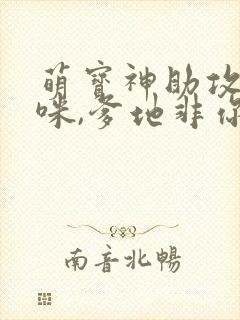 萌寶神助攻
咪,爹地非你
南音北暢